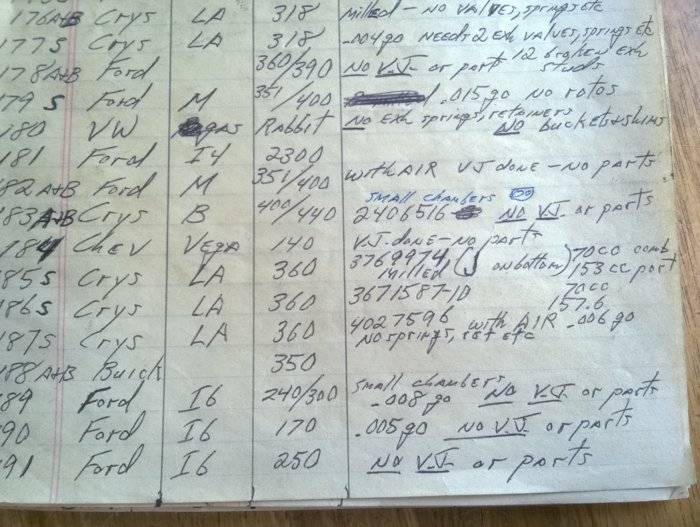 176A+B Crys LA 318 Milled - NO VALVES, springs etc
177S Crys LA 318 -.004go Needs 2 Exh VALVES, springs etc
178A+B Ford 360/390 NO V.J. or parts 12 broken exh studs
179 S Ford M 351/400 .015go No rotos
180 VW gas Rabbit NO Exh springs, retainers NO buckets+shims
181 Ford I4 2300
182A+B Ford M 351/400 with AIR VJ done - NO parts
183A+B Crys B 400/440 SMALL chambers 2406516 NO V.J. or parts
184 Chev Vega 140 V.J. done - NO parts
185S Crys LA 360 3769974 Milled ( on bottom) 70cc comb 153cc port
186S Crys LA 360 3671587-1D 70cc 157.6
187S Crys LA 360 4027596 with AIR .006go No springs, ret etc
188A+B Buick 350
189 Ford I6 240/300 SMALL chambers -.008go NO V.J. or parts
90 Ford I6 170 .005go NO V.J. or parts
91 Ford I6 250 NO V.J. or parts